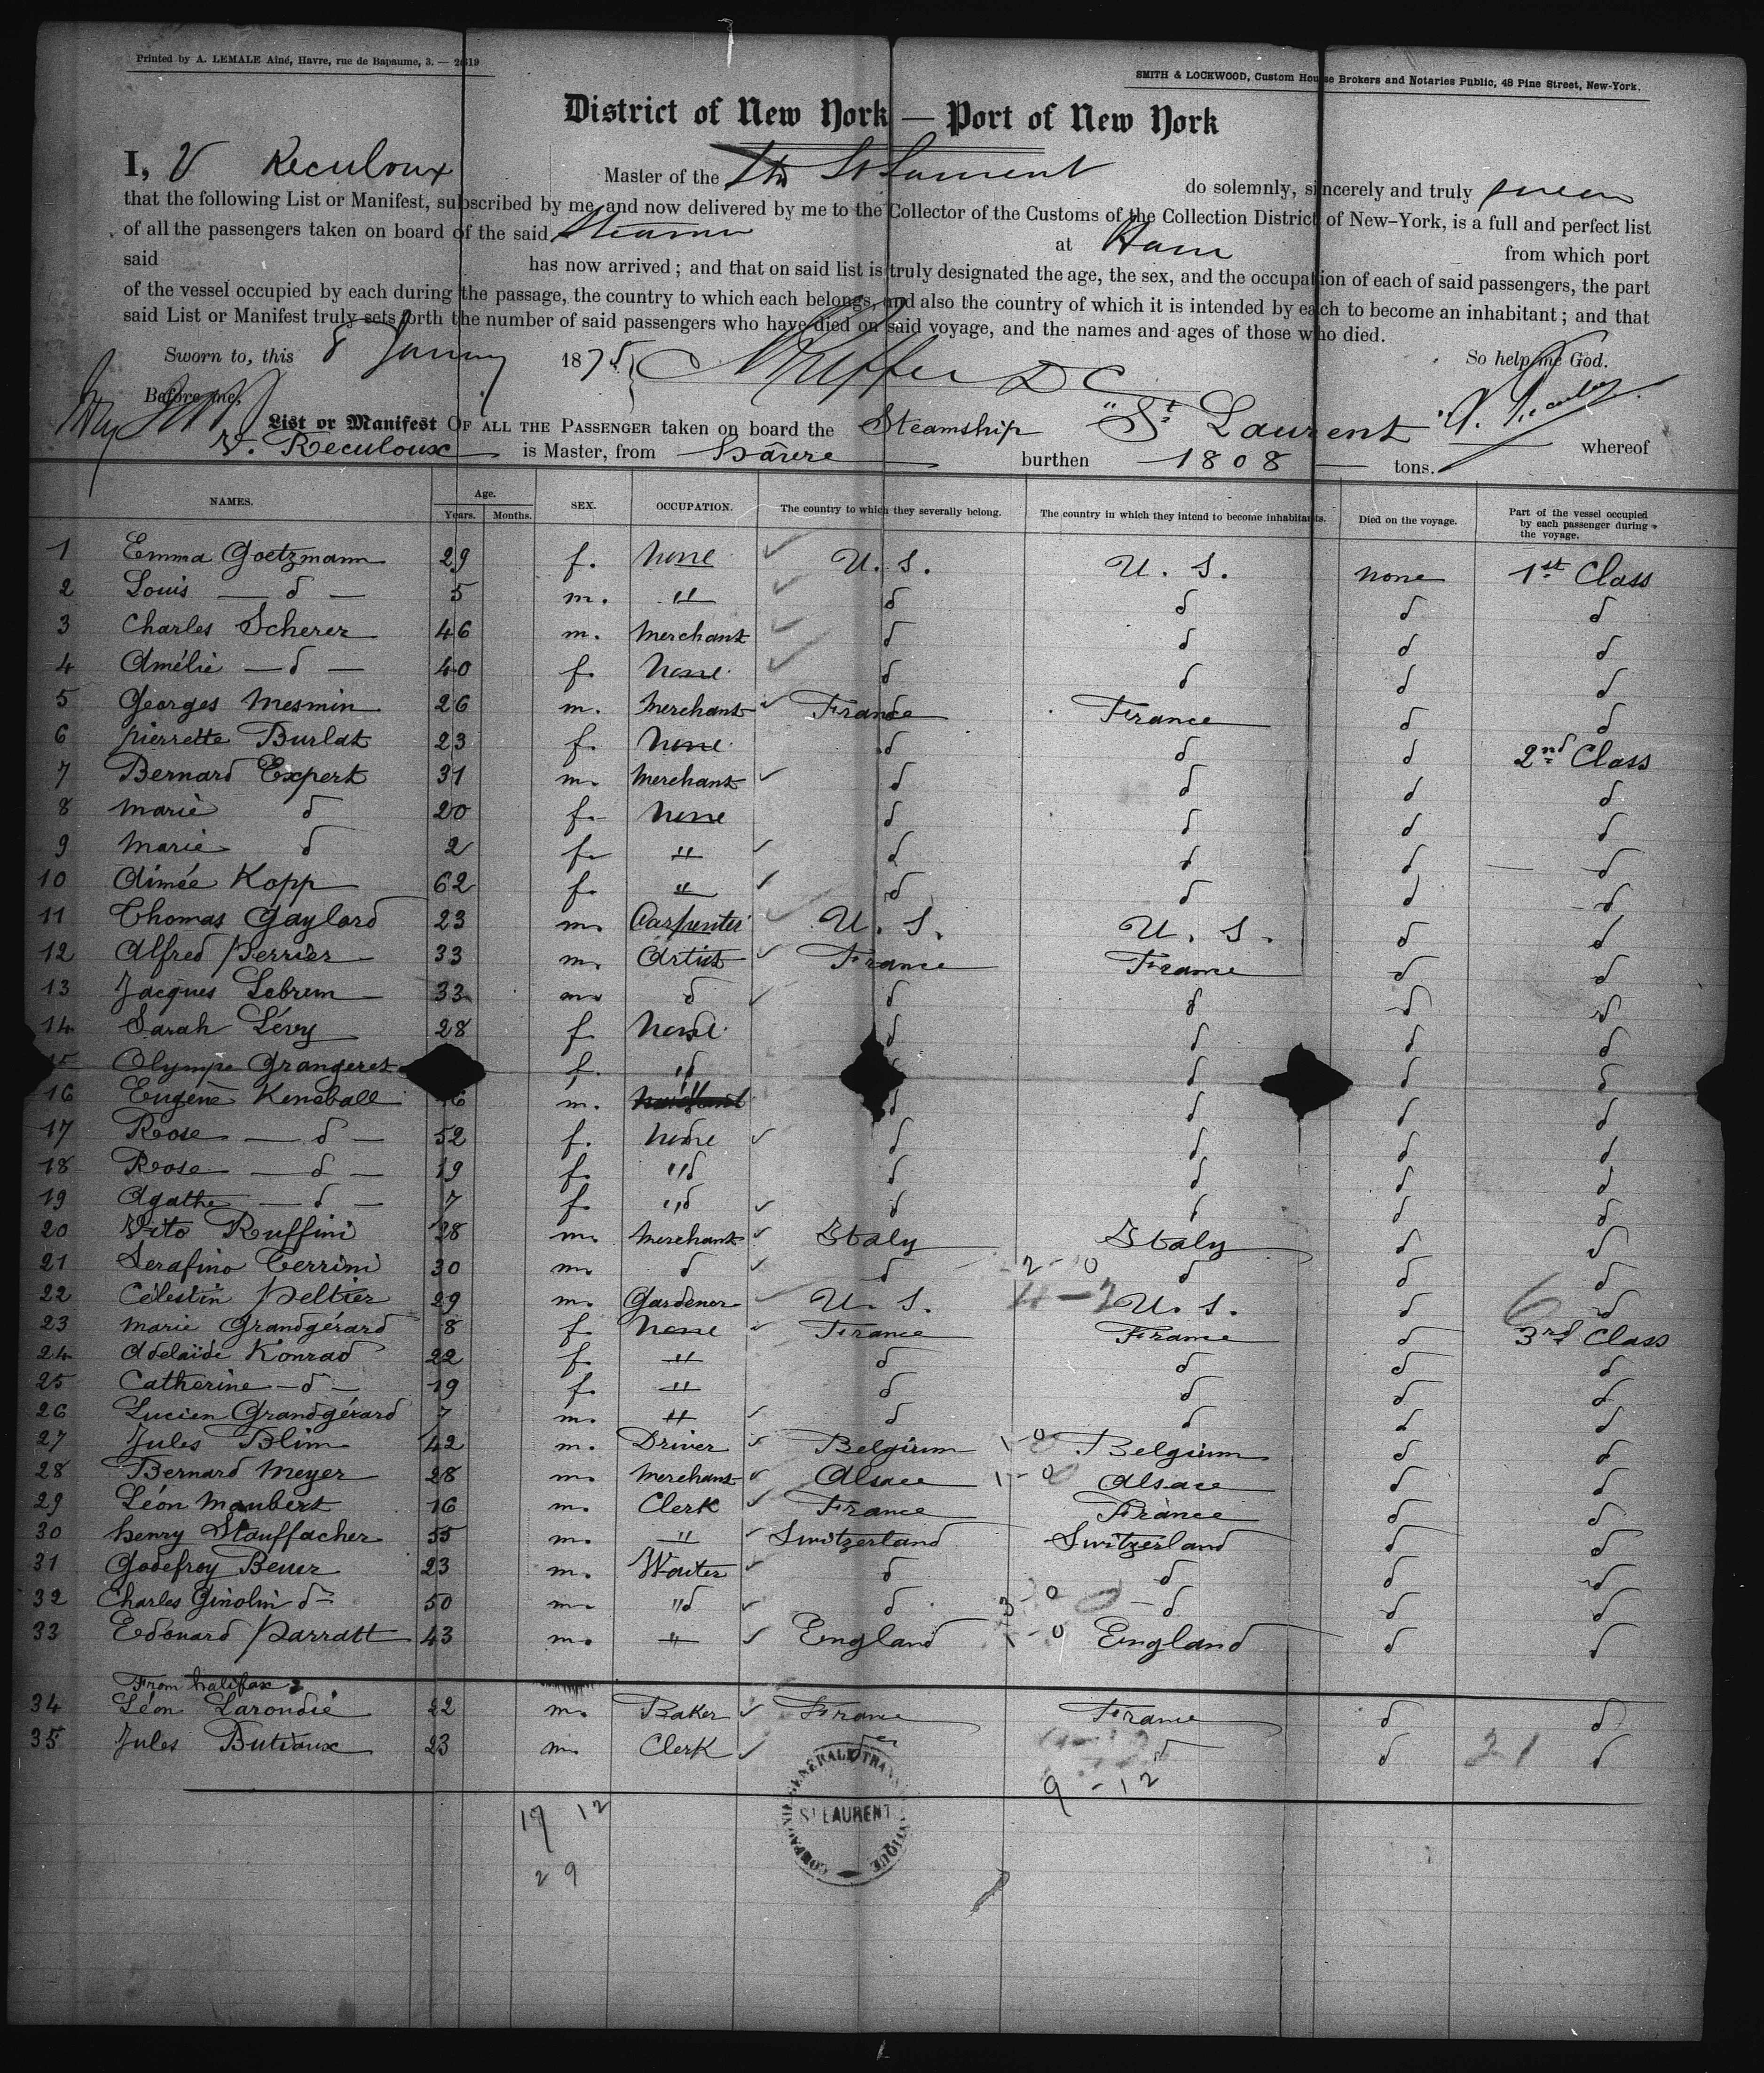 Printed by A. LEMALE Aîné, Havre, rue de Bapaume, 3. — 2619
SMITH & LOCKWOOD, Custom House Brokers and Notaries Public, 48 Pine Street, New-York.
District of New York — Port of New York
I, V Reculoux Master of the Str St Laurent do solemnly, sincerely and truly swear
that the following List or Manifest, subscribed by me, and now delivered by me to the Collector of the Customs of the Collection District of New-York, is a full and perfect list
of all the passengers taken on board of the said Steamer at Havre from which port
said has now arrived; and that on said list is truly designated the age, the sex, and the occupation of each of said passengers, the part
of the vessel occupied by each during the passage, the country to which each belongs, and also the country of which it is intended by each to become an inhabitant; and that
said List or Manifest truly sets forth the number of said passengers who have died on said voyage, and the names and ages of those who died.
Sworn to, this 8 January 1875 So help me God.
Before me, D C
List or Manifest OF ALL THE PASSENGER taken on board the Steamship "St Laurent" whereof
V. Reculoux is Master, from Hâvre burthen 1808 tons.
NAMES. Age. Years. Months. SEX. OCCUPATION. The country to which they severally belong. The country in which they intend to become inhabitants. Died on the voyage. Part of the vessel occupied by each passenger during the voyage.
1 Emma Goetzmann 29 f. none U. S. U. S. none 1st Class
2 Louis — d — 5 m. " d d d d
3 Charles Scherer 46 m. Merchant d d d d
4 Amélie — d — 40 f. None d d d d
5 Georges Mesmin 26 m. Merchant France France d d
6 Pierrette Burlat 23 f. None d d d 2nd Class
7 Bernard Expert 31 m. Merchant d d d d
8 Marie d 20 f. None d d d d
9 Marie d 2 f. " d d d d
10 Aimée Kopp 62 f. " d d d d
11 Thomas Gaylord 23 m. Carpenter U. S. U. S. d d
12 Alfred Perrier 33 m. Artist France France d d
13 Jacques Lebrun 33 m. d d d d d
14 Sarah Lévy 28 f None d d d d
15 Olympe Grangeret f. "d d d d
16 Eugène Keneball m. d d d d
17 Rose — d — 52 f. None d d d d
18 Rose — d — 19 f. "d d d d d
19 Agathe — d — 7 f. "d d d d d
20 Vito Ruffini 38 m. Merchant Italy Italy d d
21 Serafino Cerrini 30 m. d d 2 - 0 d d d
22 Célestin Peltier 29 m. Gardener U. S. U. S. d 6 d
23 Marie Grandgérard 8 f. None France France d 3rd Class
24 Adelaïde Konrad 22 f. " d d d d
25 Catherine — d — 19 f. " d d d d
26 Lucien Grandgérard 7 m. " d d d d
27 Jules Blim 42 m. Driver Belgium 1 - 0 Belgium d d
28 Bernard Meyer 28 m. Merchant Alsace 1 - 0 Alsace d d
29 Léon Maubert 16 m. Clerk France France d d
30 Henry Stauffacher 55 m. " Switzerland Switzerland d d
31 Godefroy Beuer 23 m. Waiter d d d d
32 Charles Ginolin d- 50 m. "d d 3 - 0 d d d
33 Edouard Parratt 43 m. " England 1 - 0 England d d
From Halifax
34 Léon Larondie 22 m. Baker France France d d
35 Jules Butiaux 23 m. Clerk d d d 21 d
9 - 12
17 12
29
COMPAGNIE GÉNÉRALE TRANSATLANTIQUE
ST LAURENT